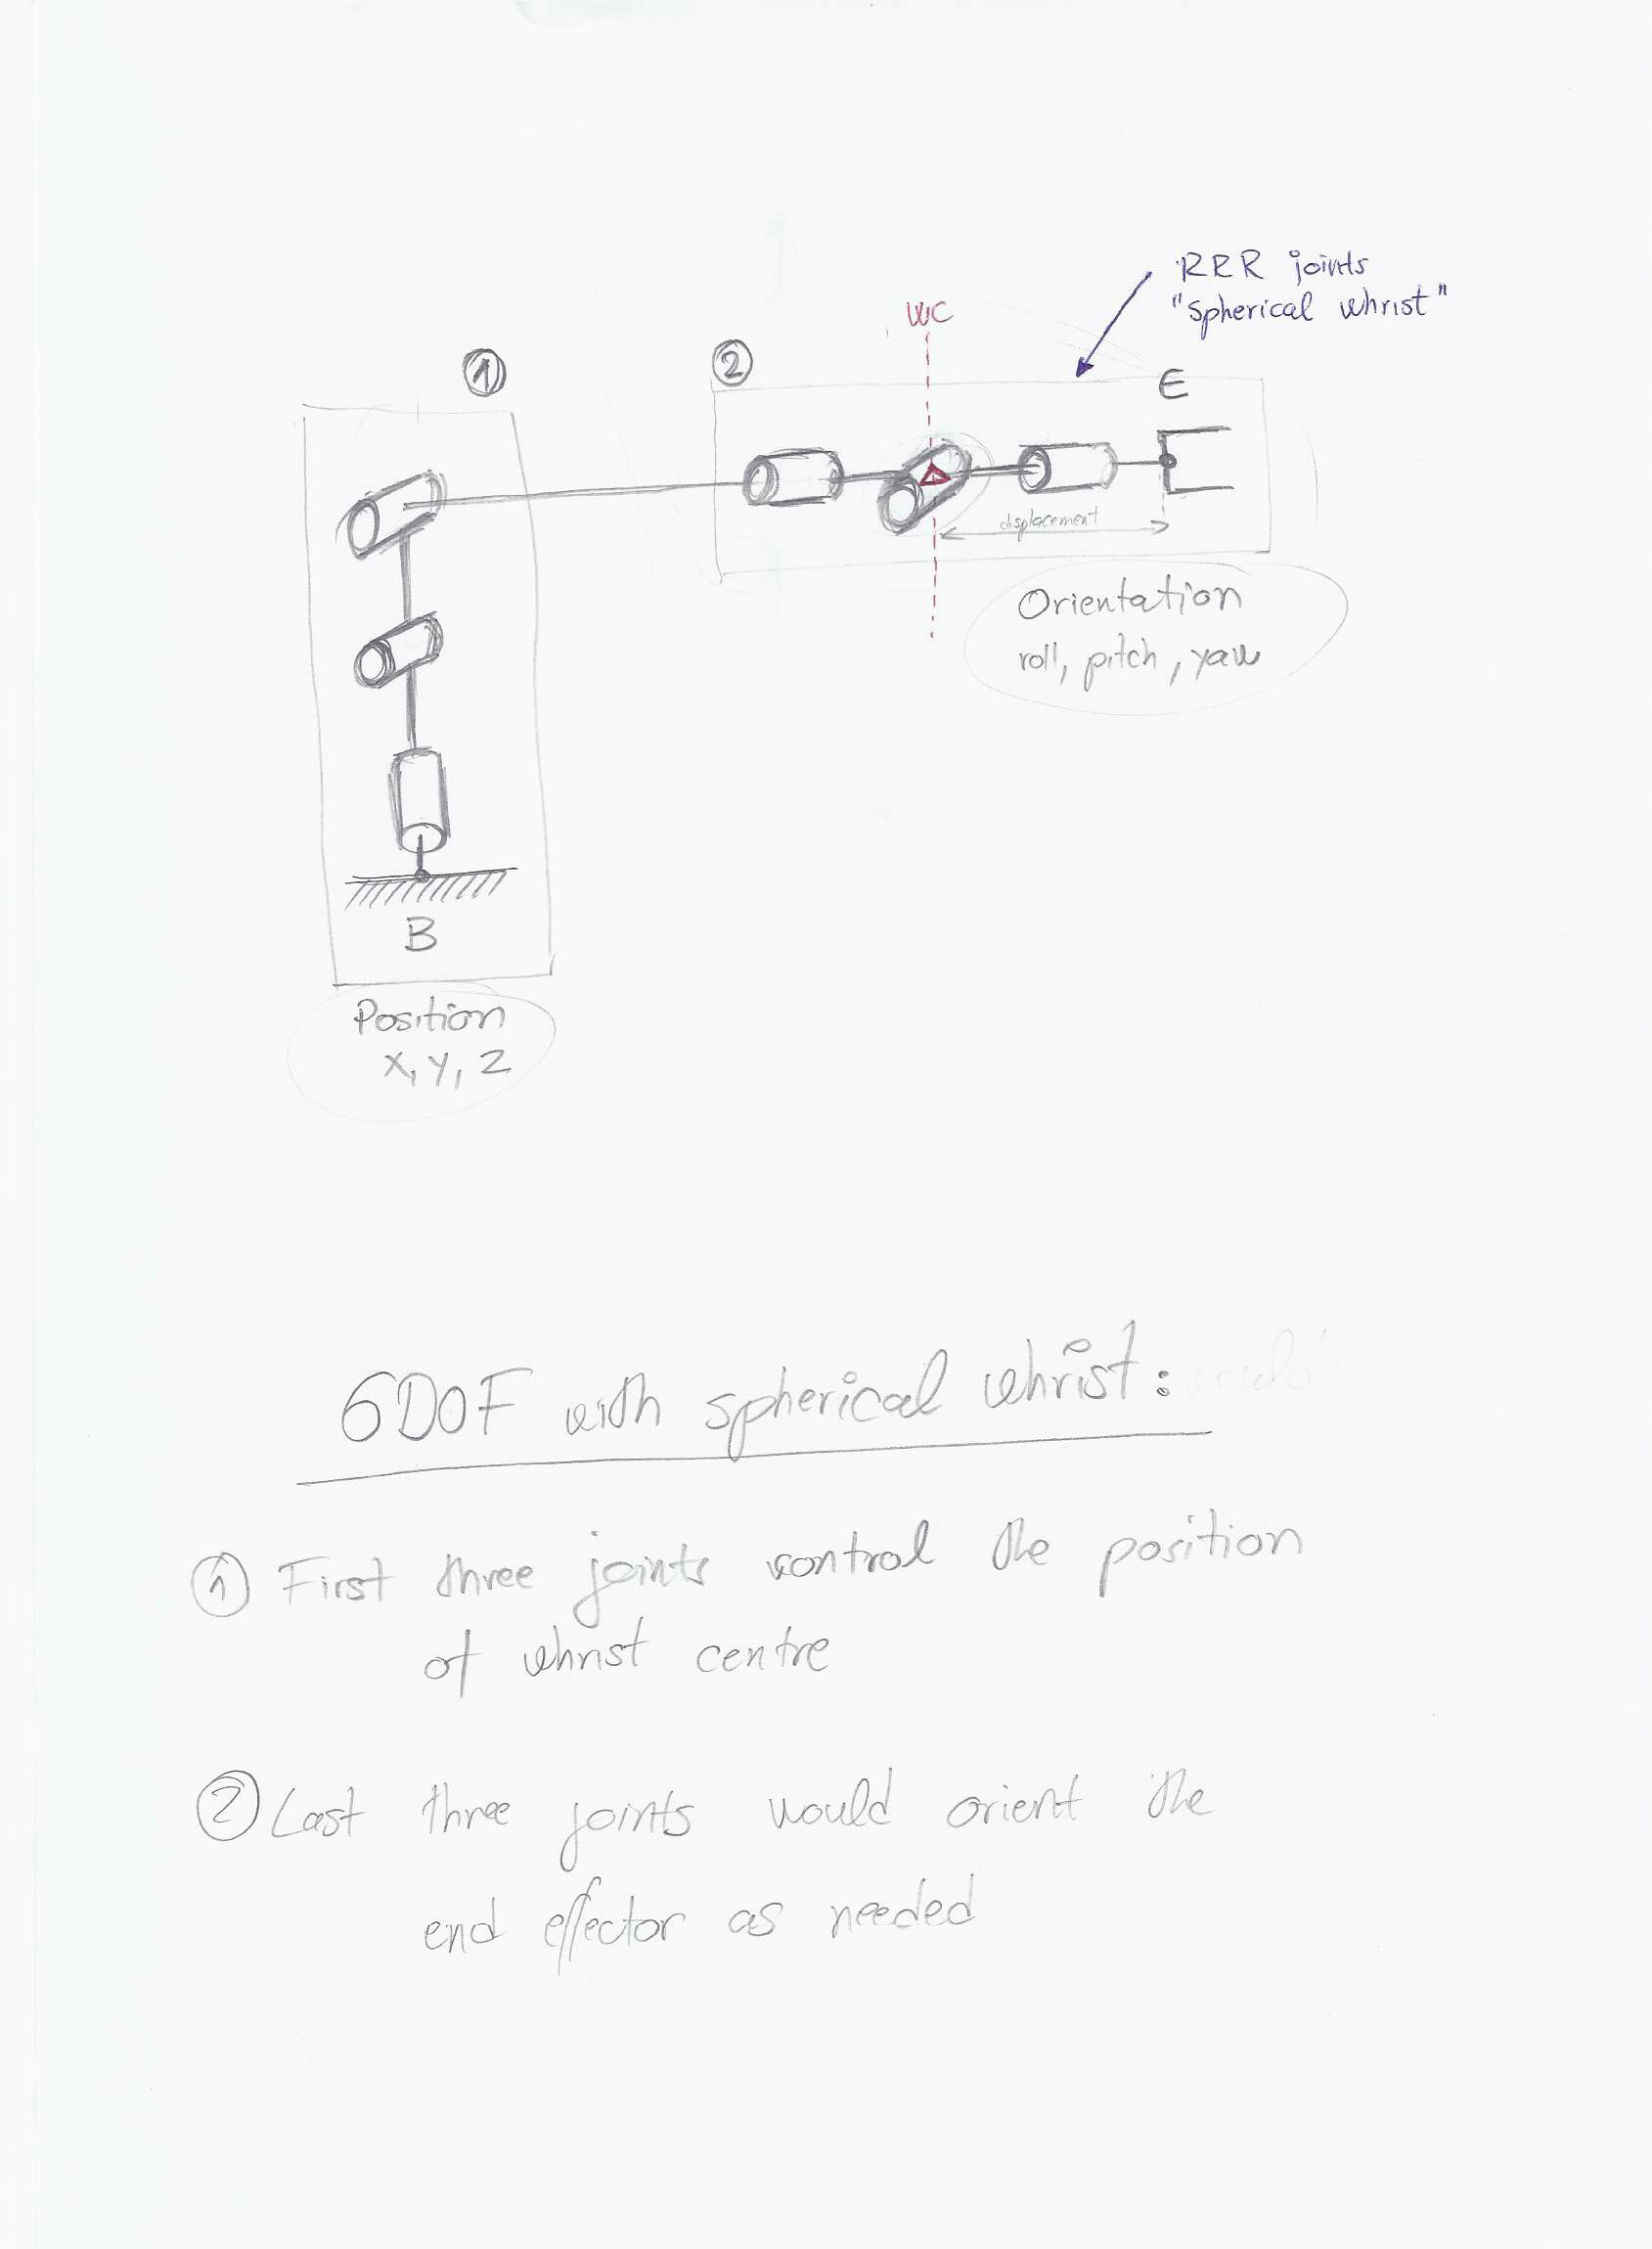 RRR joints
"Spherical whrist"
WC
1
2
E
displacement
Orientation
roll, pitch, yaw
B
Position
X, Y, Z
6DOF with spherical whrist:
1 First three joints control the position
of whrist centre
2 Last three joints would orient the
end effector as needed